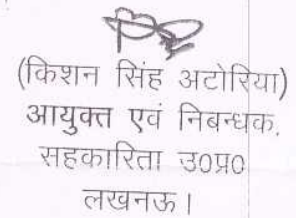 (किशन सिंह अटोरिया)
आयुक्त एवं निबन्धक,
सहकारिता उ०प्र०
लखनऊ।